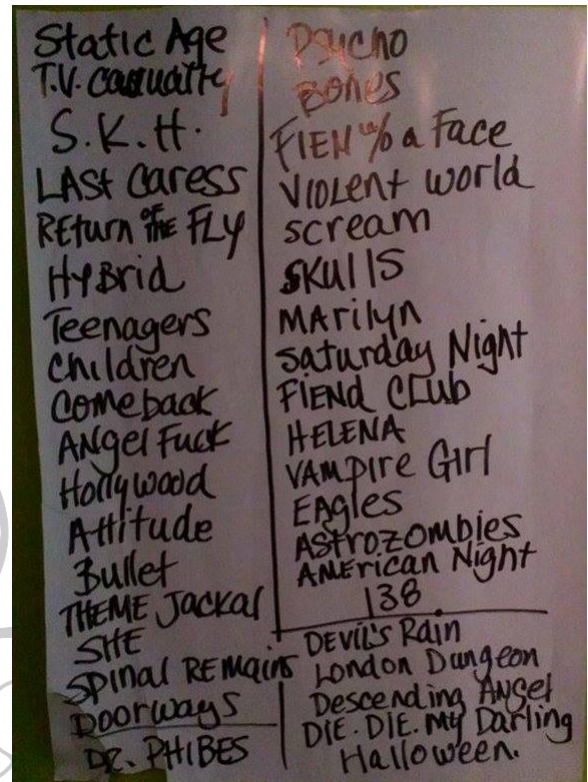 Static Age
T.V. Casualty
S.K.H.
LAST CARESS
REturn OF THE FLY
HYBrid
Teenagers
Children
Comeback
ANgel FucK
Hollywood
Attitude
Bullet
THEME JacKal
SHE
SPINal REMains
Doorways
DR. PHIBES
Psycho
BONES
FIEN w/o a Face
VIOLENt world
scream
SKULLS
MARilyn
Saturday Night
FIENd CLub
HELENA
VAMPIRE GIRl
EAgles
ASTROZOMbies
AMERican Night
138
DEVIL'S RaIN
London Dungeon
Descending ANGEL
DIE. DIE. My Darling
Halloween.